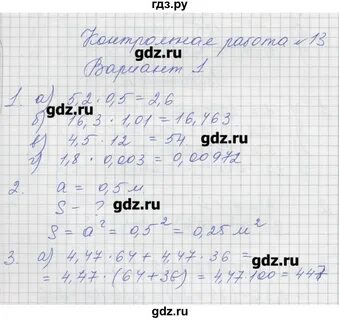 гдз.ру
Контрольная работа №13
gdz.ru
Вариант 1
1. а) 5,2 · 0,5 = 2,6
gdz.ru
б) 16,3 · 1,01 = 16,463
в) 4,5 · 12 = 54
gdz.ru
г) 1,8 · 0,003 = 0,00972
2. a = 0,5 м
gdz.ru
S - ?
S = a² = 0,5² = 0,25 м²
gdz.ru
3. а) 4,47 · 64 + 4,47 · 36 =
= 4,47 · (64 + 36) = 4,47 · 100 = 447
gdz.ru